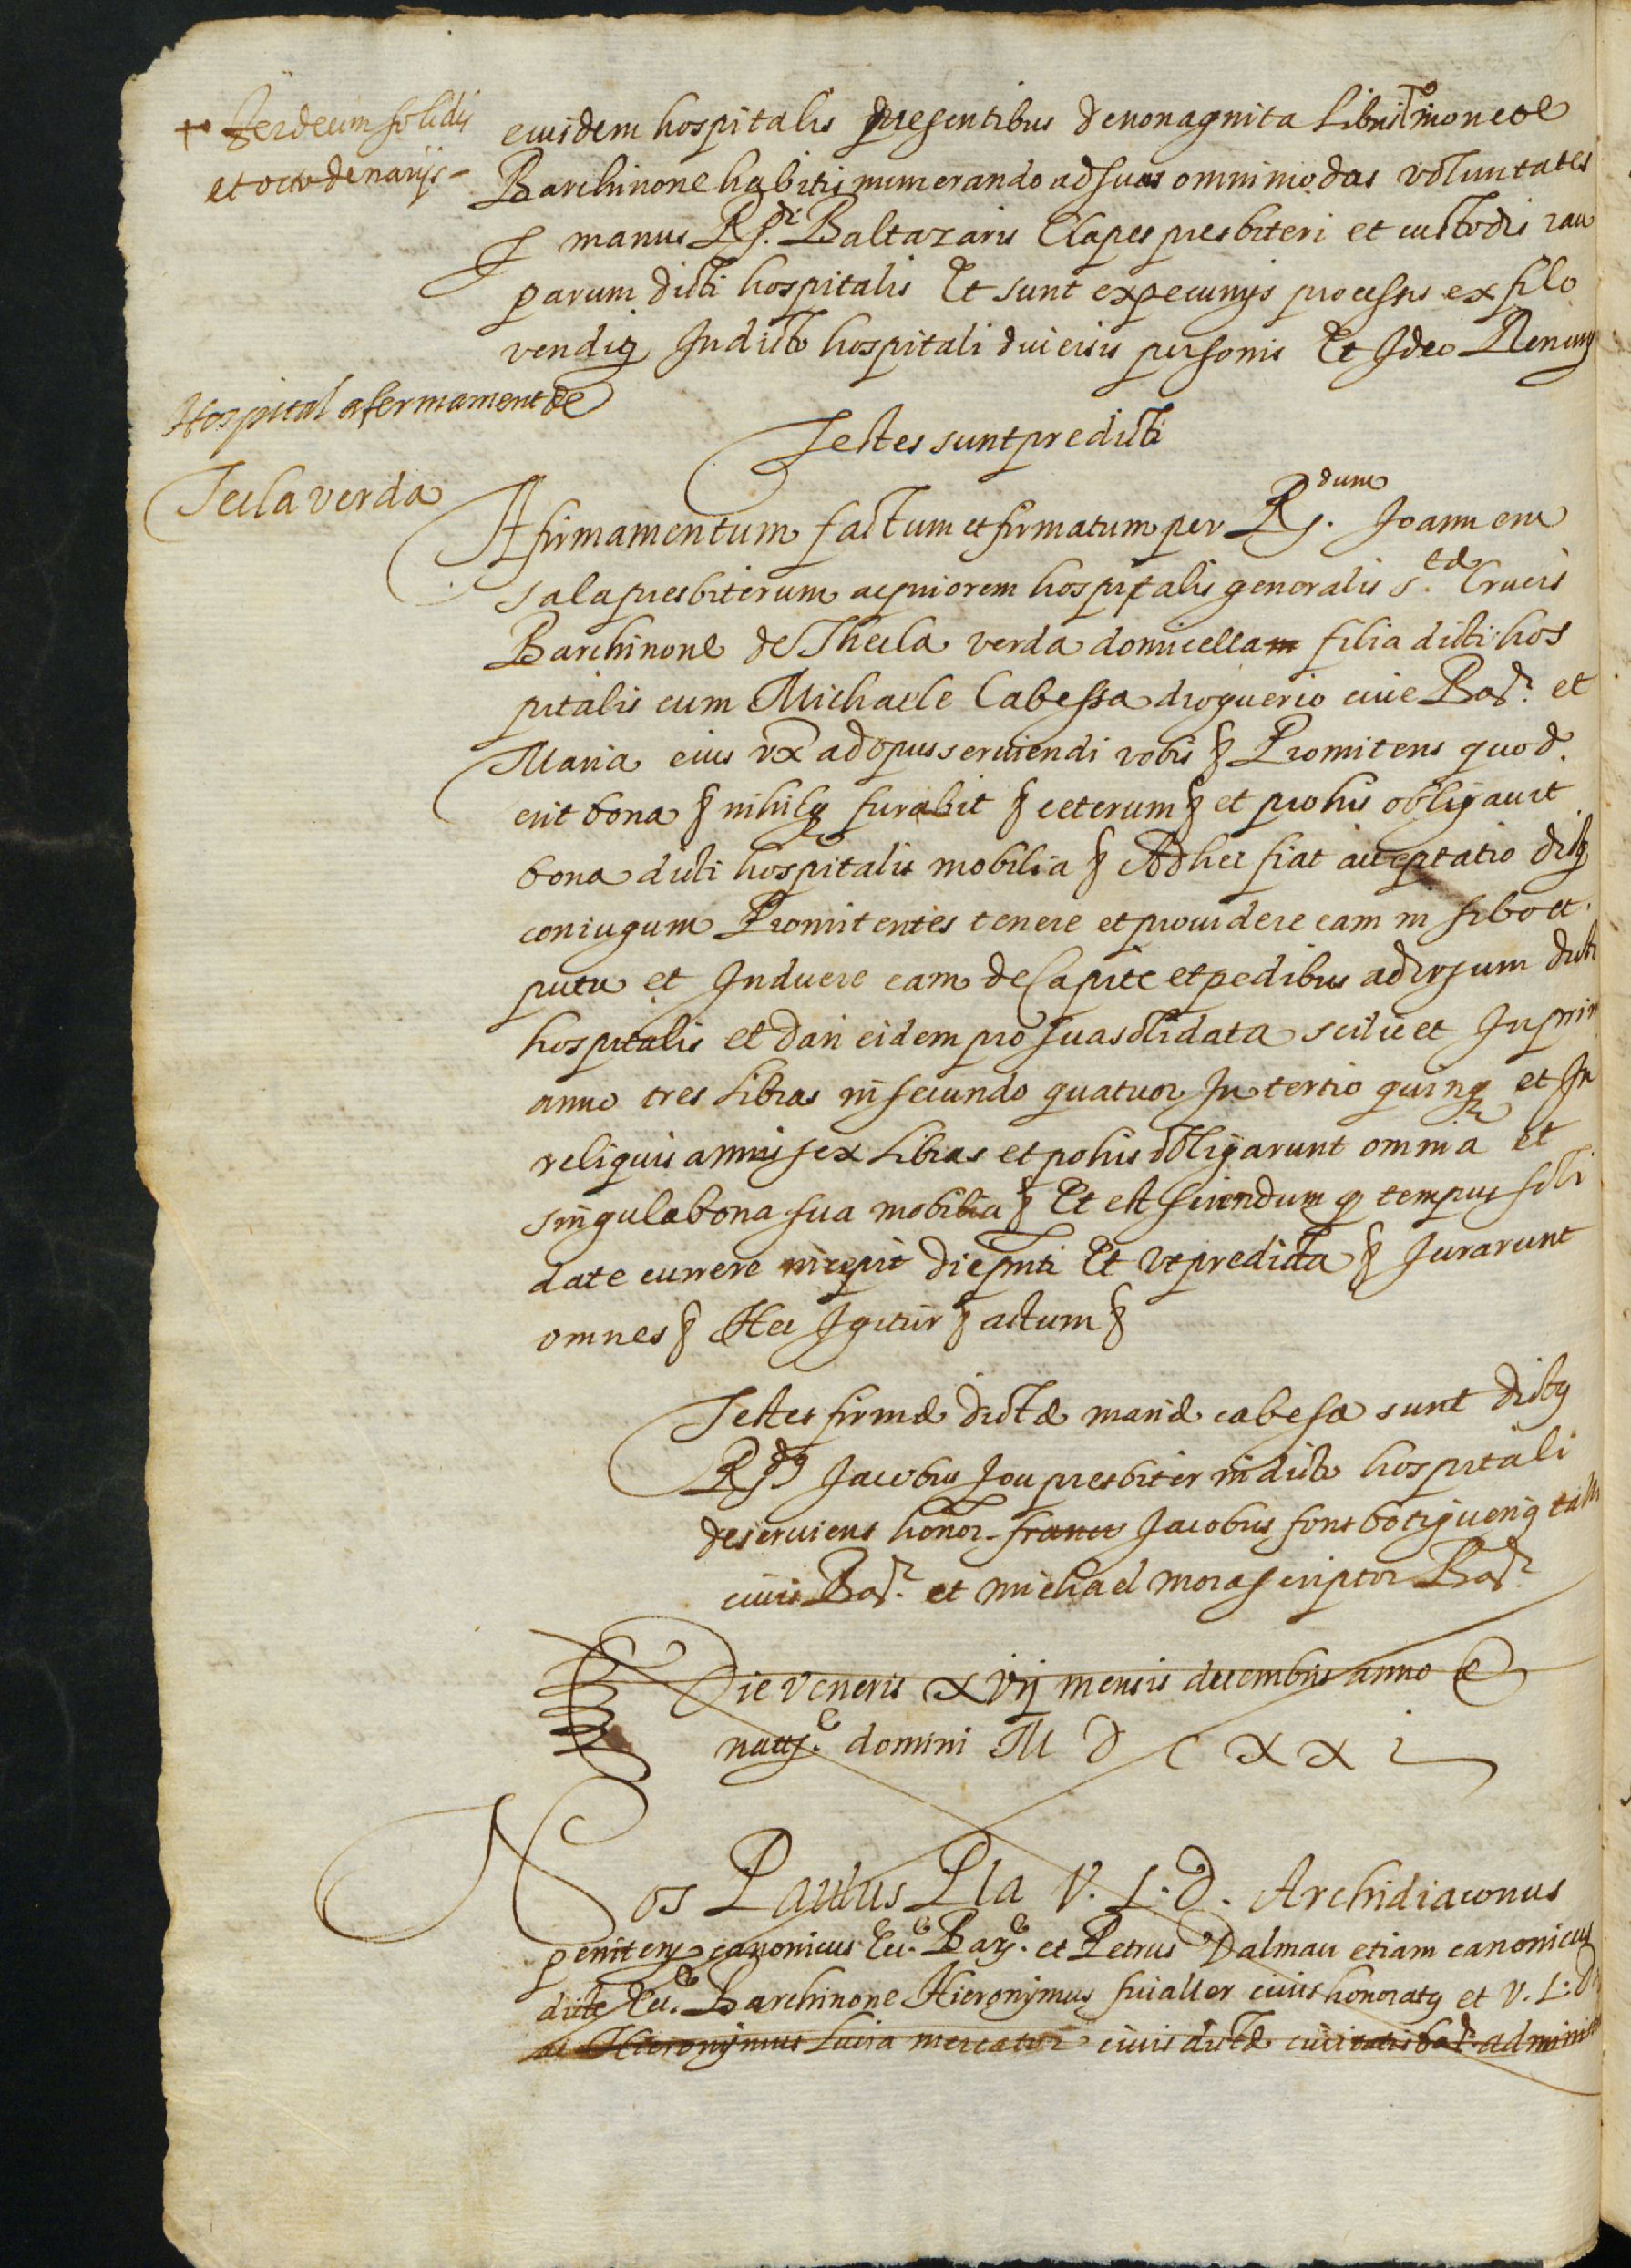 + sexdecim solidis
et octo denarijs -
eiusdem hospitalis presentibus de nonaginta libris + monete
Barchinone habitis numerando ad suas omnimodas voluntates
manus Rdi. Baltazaris Clapes presbiteri et custodis rau
parum dicti hospitalis Et sunt ex pecunijs processis ex filo
vendiq In dicto hospitali diuersis personis Et Ideo Renun
Testes sunt predicti
Hospital afermament de
Tecla verda
Afirmamentum factum et firmatum per Rdum. Joannem
Sala presbiterum ac priorem hospitalis generalis s.te Crucis
Barchinone de Thecla verda domicella filia dicti hos
pitalis cum Michaele Cabessa droguerio ciue Bar. et
Maria eius vx ad opus seruiendi vobis § Promitens quod
erit bona § nihilq furabit § ceterum § et pro his obligauit
bona dicti hospitalis mobilia § Ad hec fiat acceptatio dictoꝝ
coniugum Promitentes tenere et prouidere eam in sibo et
putu et Induere eam de Capite et pedibus ad vsum dicti
hospitalis et dari eidem pro sua solidata scilicet In prim
anno tres libras in secundo quatuor In tertio quinq et In
reliquis annis sex libras et pro his obligarunt omnia et
singula bona sua mobilia § Et est sciendum q tempus soli
date currere incepit die pnti Et vt predicta § Jurarunt
omnes § Hec Igitur § actum §
Testes firmæ dictæ mariæ cabesa sunt dictus
Rdus Jacobus Jou presbiter in dicto hospitali
deseruiens honor. franc Jacobus font botiguerius
ciuis Bar. et michael mora scriptor Bar.
Die veneris xvij mensis decembris anno e
natte. domini M D C XX i
Nos Paulus Pla V. J. D. Archidiaconus
penitens canonicus Ecc.e Bar. et Petrus Dalmau etiam canonicus
dicte Ecc.e Barchinone Hieronymus fiualler ciuis honoratus et V. J. D
ac Hieronymus Luira mercator ciuis dictæ ciuitatis bar adminis